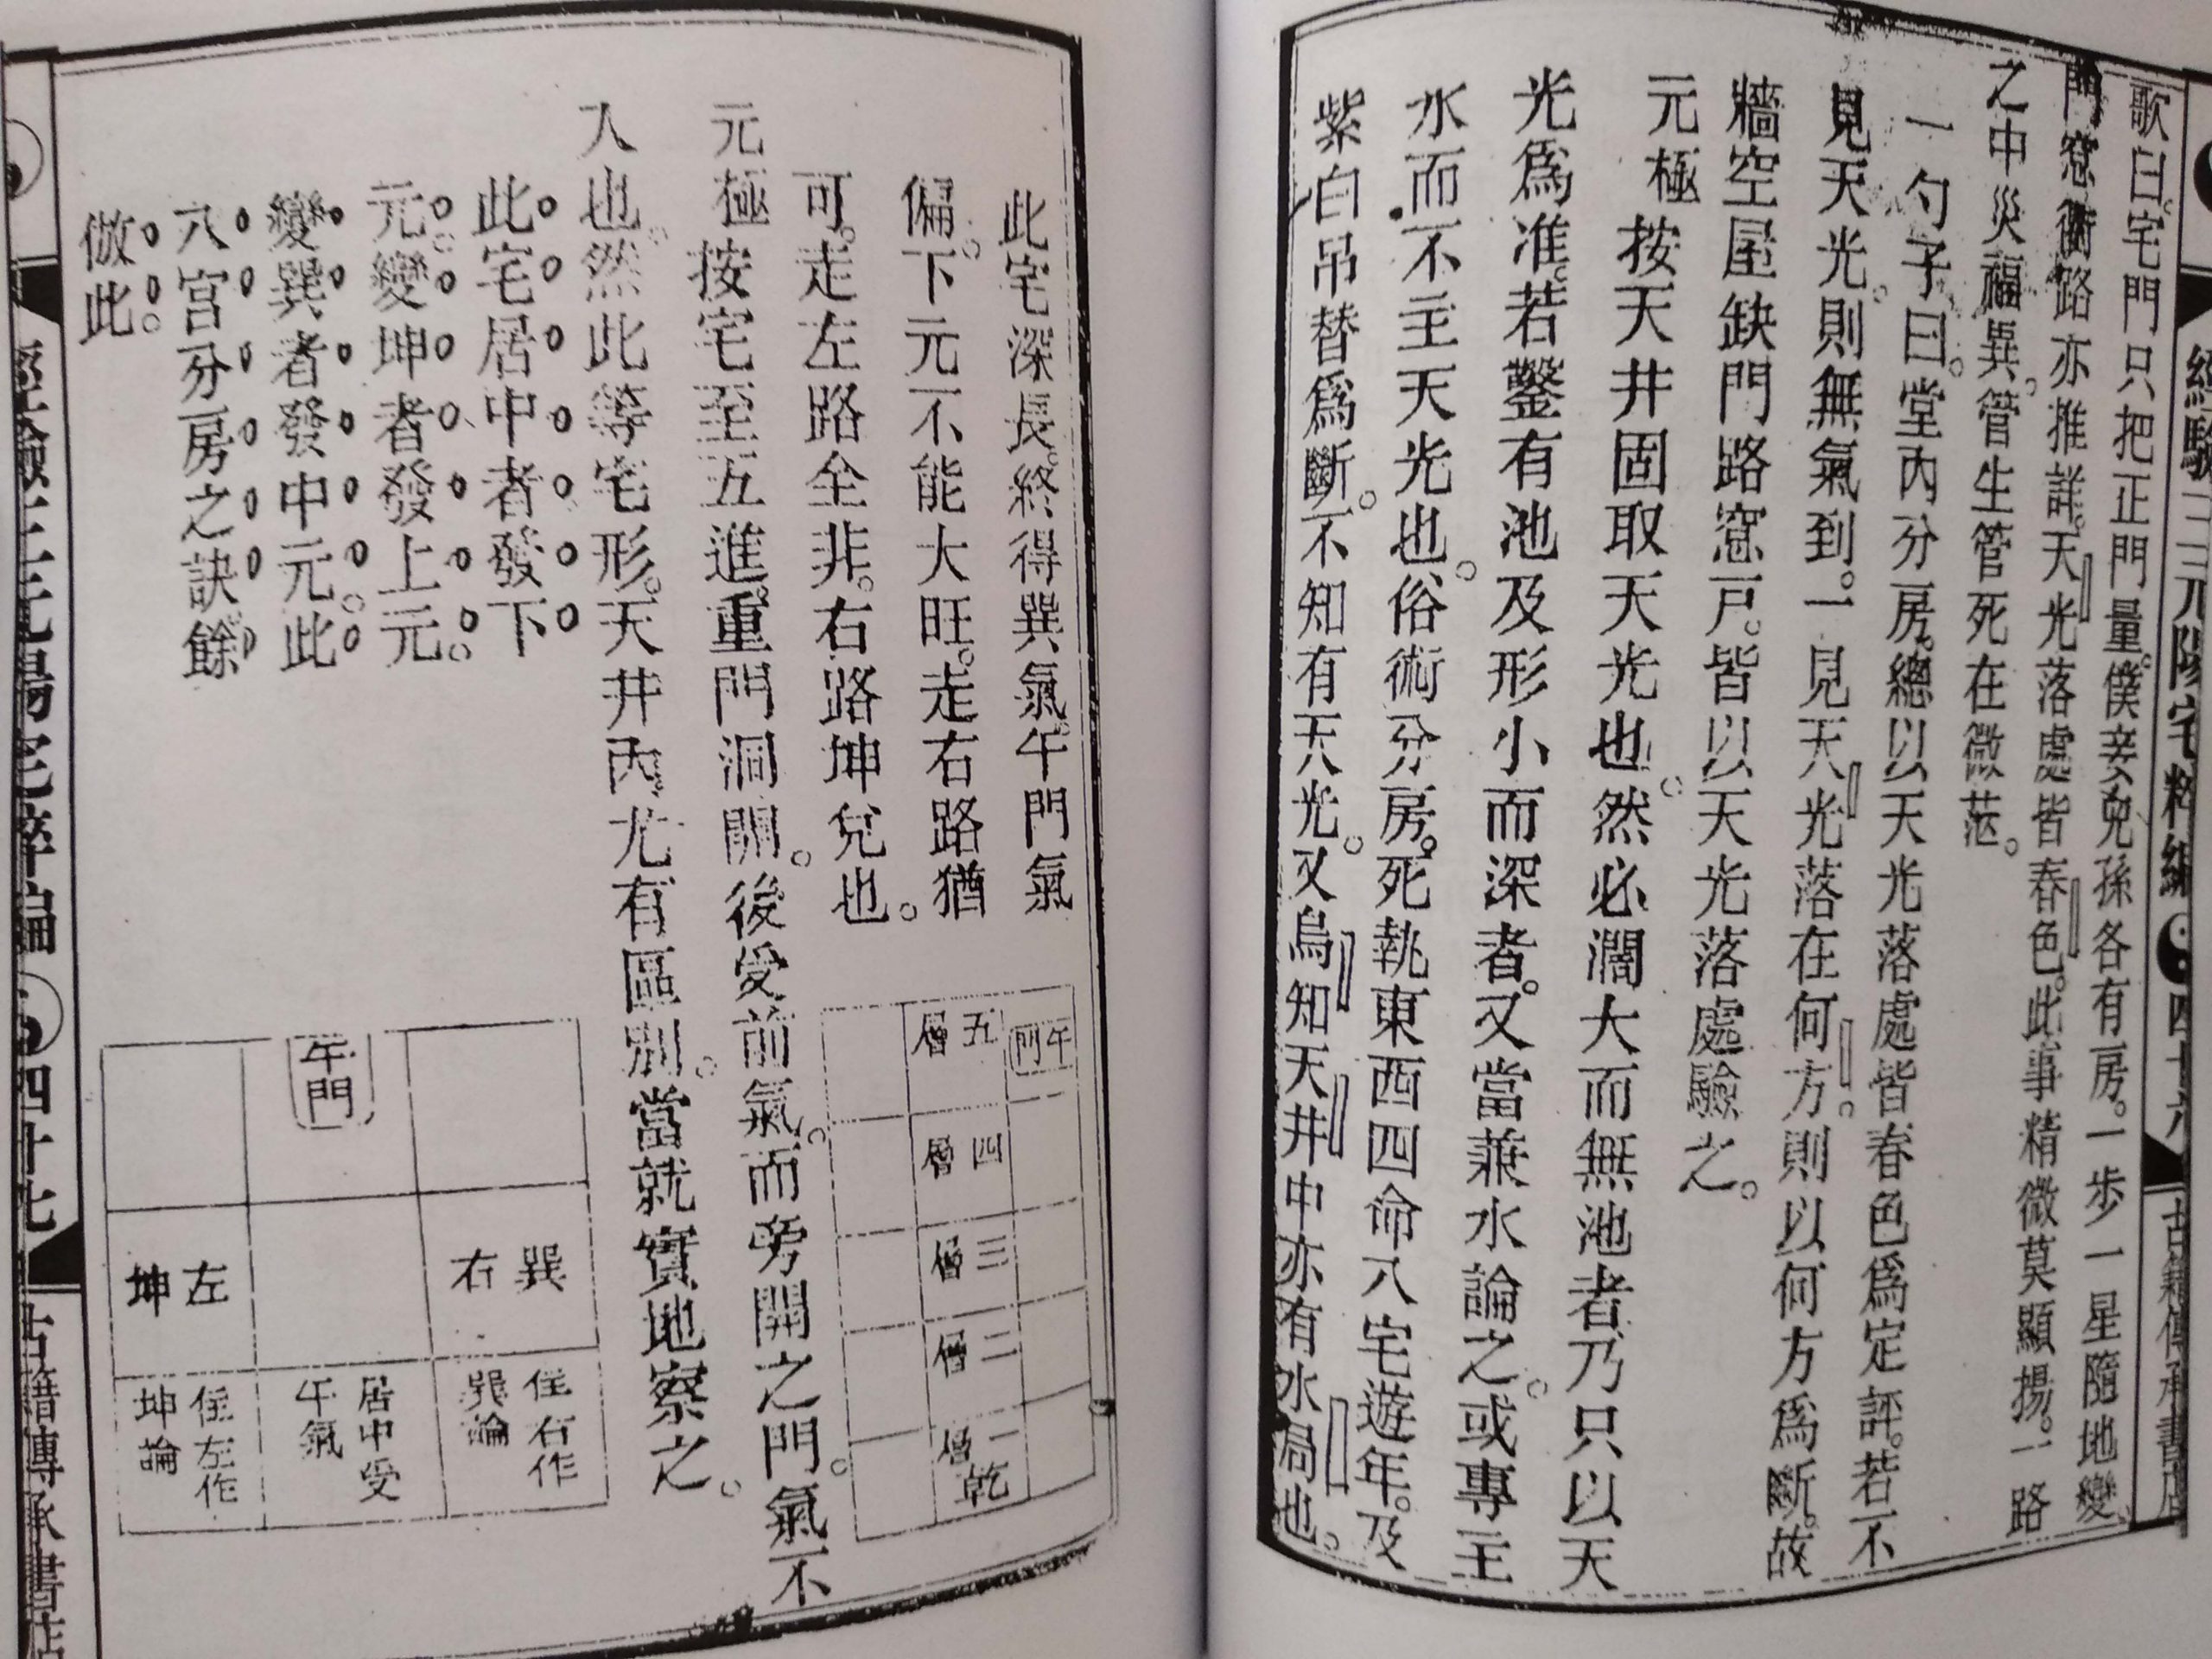 經驗三元陽宅粹編
四十六
歌曰。宅門只把正門量。僕妾兒孫各有房。一步一星隨地變。
門窓衝路亦推詳。天光落處皆春色。此事精微莫顯揚。一路
之中災福異。管生管死在微茫。
一勺子曰。堂內分房。總以天光落處皆春色爲定評。若不
見天光。則無氣到。一見天光落在何方。則以何方爲斷。故
牆空屋缺門路窓戸。皆以天光落處驗之。
元極按天井固取天光也。然必濶大而無池者乃只以天
光爲准。若鑿有池及形小而深者。又當兼水論之。或專主
水而不主天光也。俗術分房。死執東西四命八宅遊年。及
紫白吊替爲斷。不知有天光。又烏知天井中亦有水局也。
此宅深長。終得巽氣。午門氣
偏。下元不能大旺。走右路猶
可。走左路全非。右路坤兌也。
午門
五層
四層
三層
二層
一層
乾
元極按宅至五進。重門洞開。後受前氣。而旁開之門。氣不
入也。然此等宅形。天井內尤有區別。當就實地察之。
此宅居中者發下
元。變坤者發上元。
變巽者發中元。此
八宮分房之訣。餘
倣此。
午門
巽右
左坤
住右作巽論
居中受午氣
住左作坤論
經驗三元陽宅粹編
四十七
古籍傳承書店